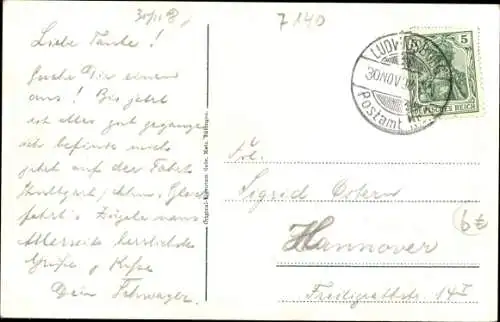 30/11 8
7140
Liebe Tante!
aus! Bis jetzt
ist alles gut gegangen
ich befinde mich
jetzt auf der Fahrt
Stuttgart
fahrt
Allerseits herrlichste
Grüße & Küße
Dein Schwager
Original-Aufnahme Gebr. Metz, Tübingen.
LUDWIGSBURG
30 NOV
Postamt
5
DEUTSCHES REICH
Frl.
Sigrid Ostern
Hannover
Freiligrathstr. 14 I
6€